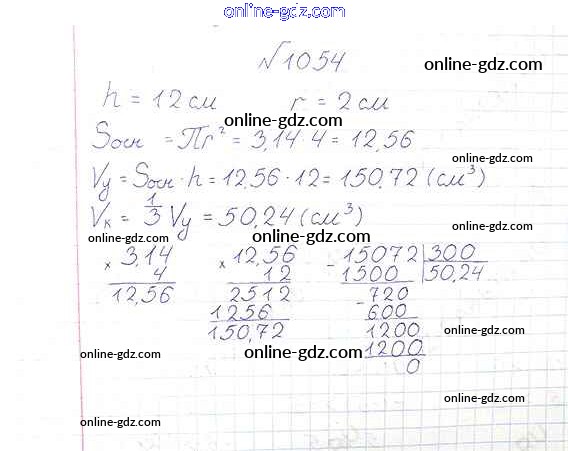 online-gdz.com
№1054
online-gdz.com
h = 12 см r = 2 см
online-gdz.com
Sосн = Πr² = 3,14 · 4 = 12,56
online-gdz.com
Vу = Sосн · h = 12,56 · 12 = 150,72 (см³)
online-gdz.com
Vк = 1/3 Vу = 50,24 (см³)
online-gdz.com online-gdz.com
× 3,14 × 12,56 - 15072 | 300
4 12 1500 50,24
12,56 2512 - 720
1256 600
150,72 1200
1200
0
online-gdz.com
online-gdz.com
online-gdz.com online-gdz.com
online-gdz.com
online-gdz.com